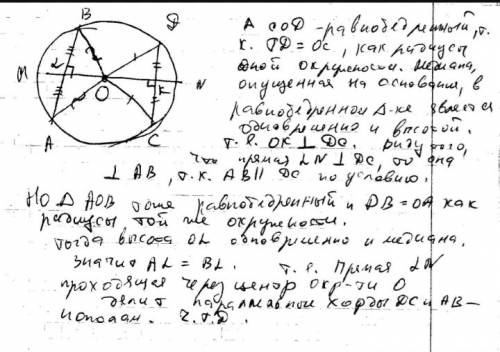 B
D
M
L
K
N
O
A
C
Δ COD - равнобедренный, т.
к. OD = OC, как радиусы
одной окружности. Медиана,
опущенная на основание, в
равнобедренном Δ-ке является
одновременно и высотой.
т. е. OK ⊥ DC. Ввиду того,
что прямая LN ⊥ DC, то она
⊥ AB, т.к. AB || DC по условию.
НО Δ AOB тоже равнобедренный и OB = OA как
радиусы той же окружности.
Тогда высота OL одновременно и медиана.
Значит AL = BL. т. е. Прямая LN
проходящая через центр окр-ти O
делит параллельные хорды DC и AB -
пополам. Ч.Т.Д.